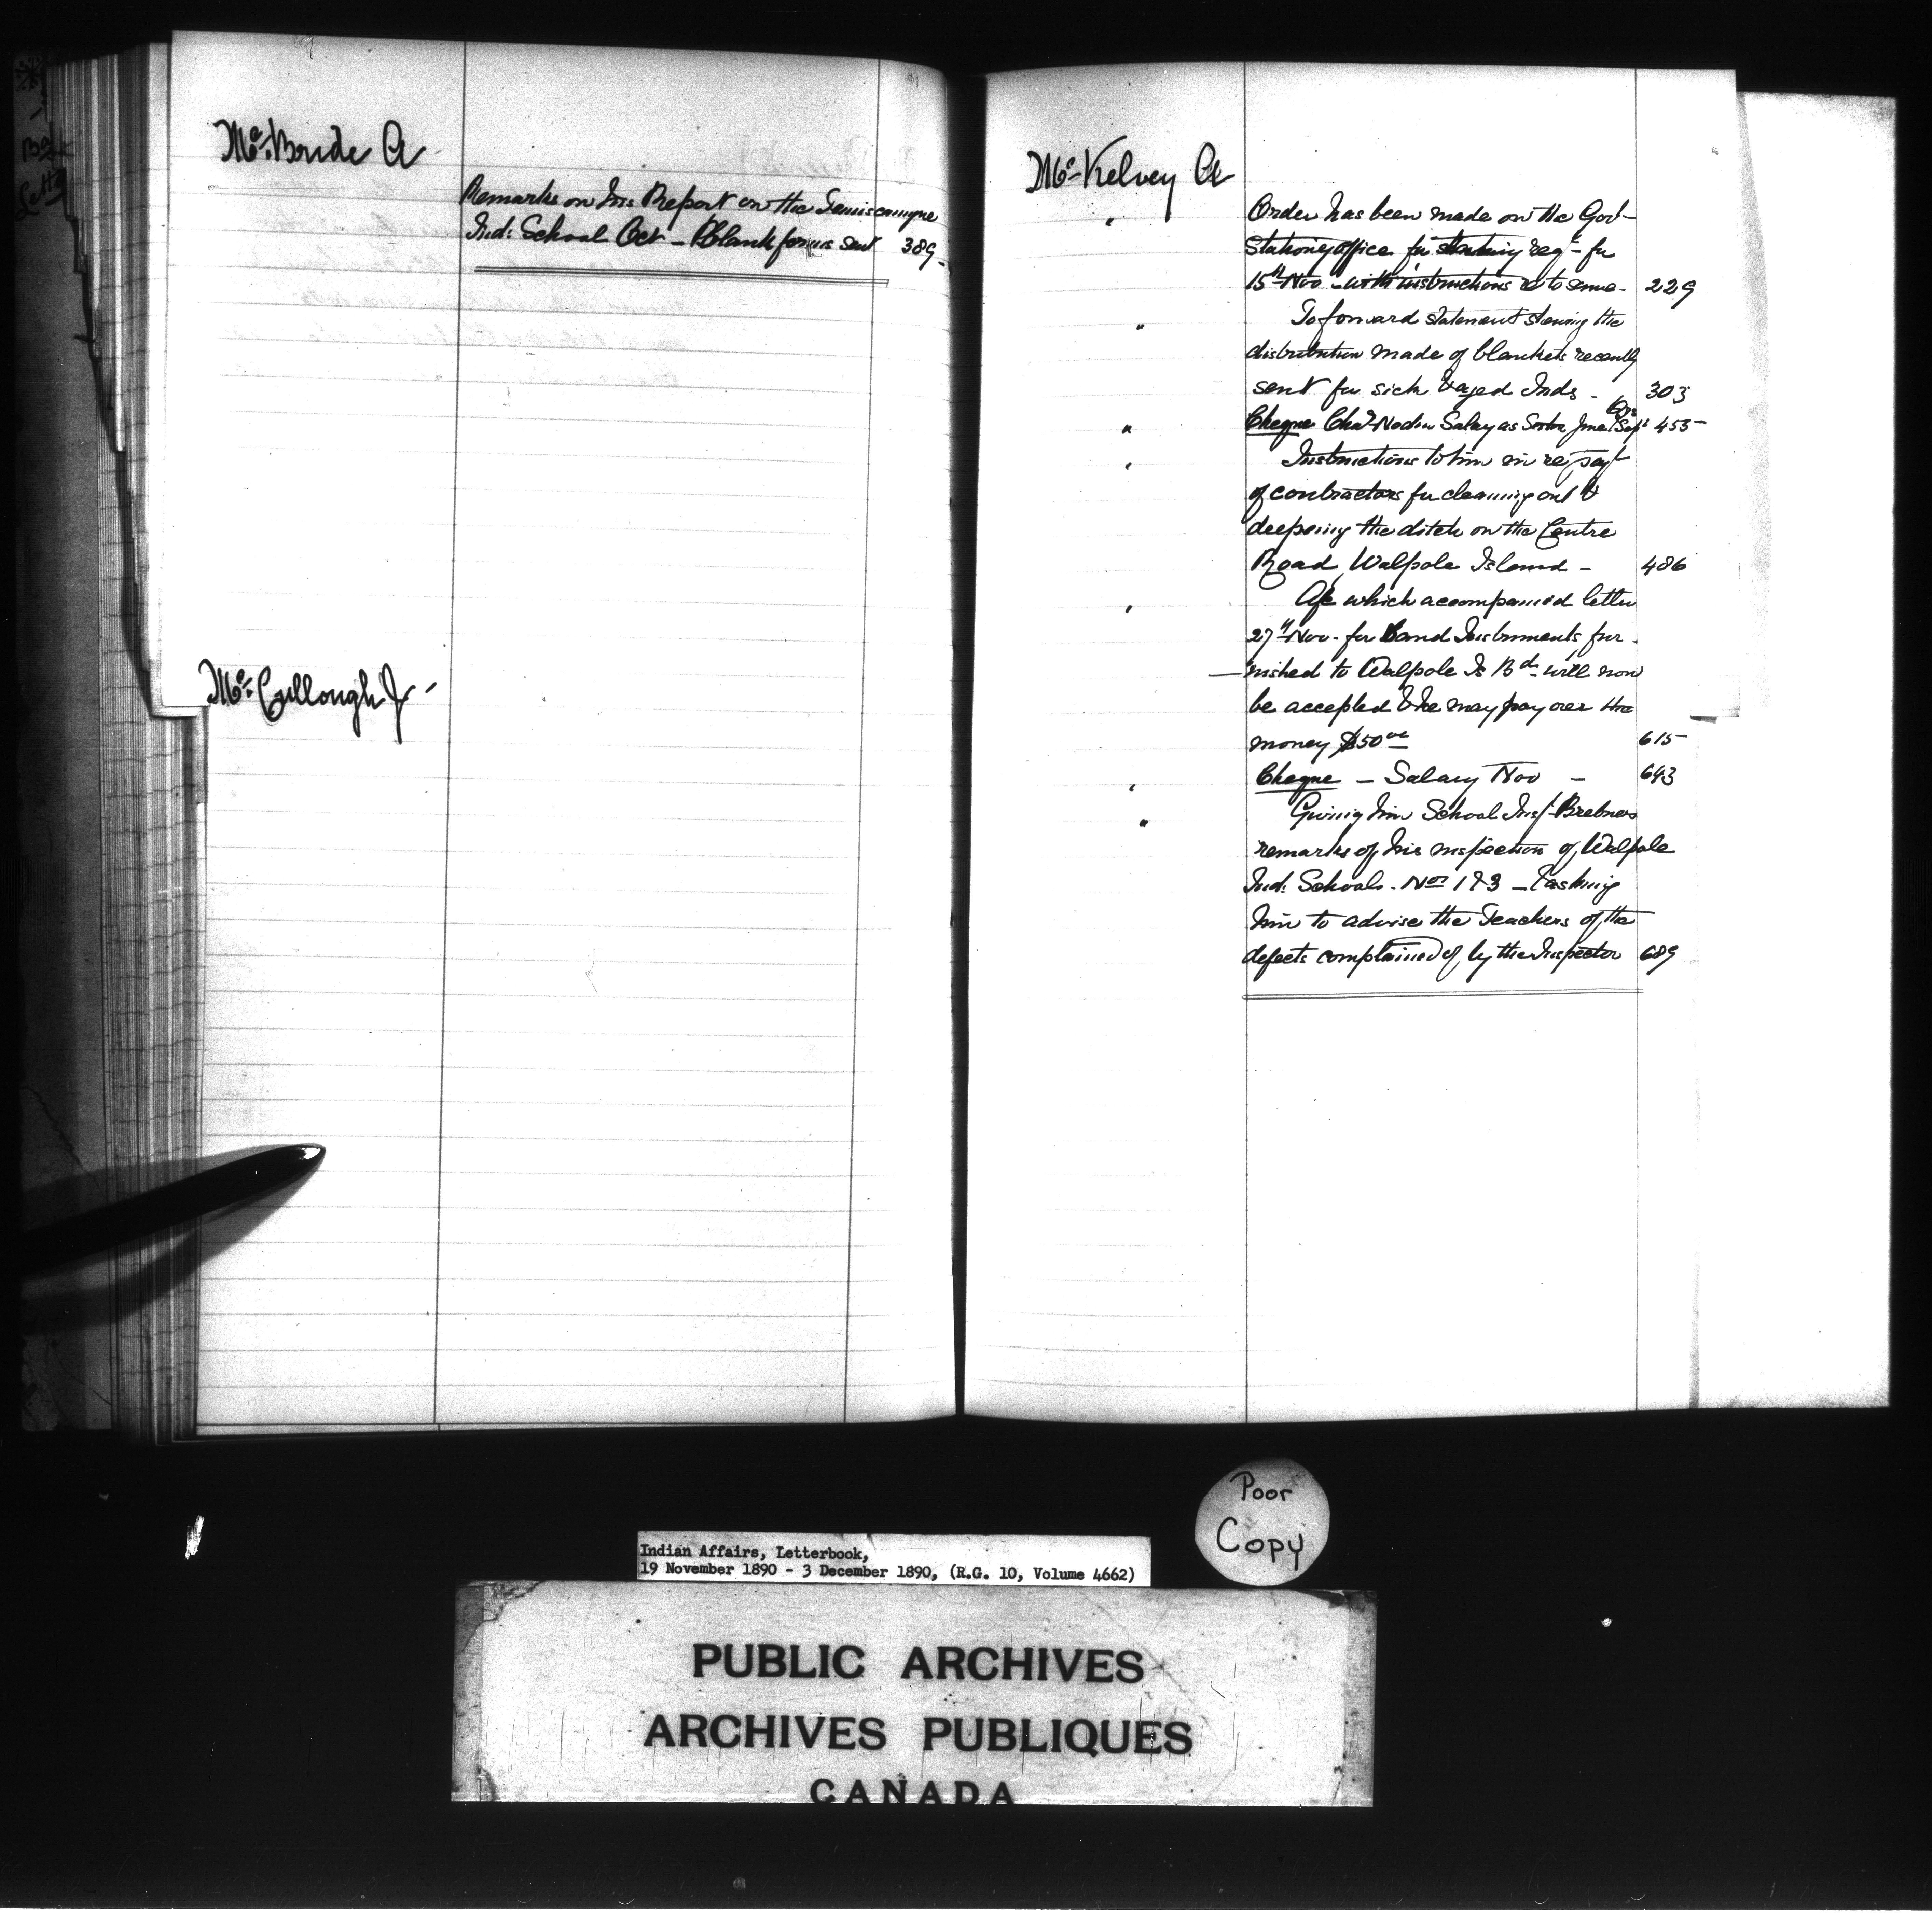 Mc.Bride A
Remarks on his Report on the Temiscamgue
Ind: School Oct - & blank forms sent 389-
Mc.Cullough J-
Mc-Kelvey A
" Order has been made on the Govt-
Stationy office for stationy reqt- for
15th Nov - with instructions as to same - 229
" To forward statement showing the
distribution made of blankets recently
sent for sick & aged Inds - 303
" Cheque Chas Nodin Salary as Sexton June Qrs Sept 455-
" Instructions to him in re payt
of contractors for cleaning out &
deeping the ditch on the Centre
Road, Walpole Island - 486
" a/c which accompanied letter
27th Nov - for Band Instruments fur-
nished to Walpole Is Bd- will now
be accepted & he may pay over the
money $50 00 615-
" Cheque - Salary Nov - 643
" Giving him School Inspt- Brebners
remarks of his inspection of Walpole
Ind: Schools. Nos 1 & 3 - & asking
him to advise the Teachers of the
defects complained of by the Inspector 689
Poor
Copy
Indian Affairs, Letterbook,
19 November 1890 - 3 December 1890, (R.G. 10, Volume 4662)
PUBLIC ARCHIVES
ARCHIVES PUBLIQUES
CANADA